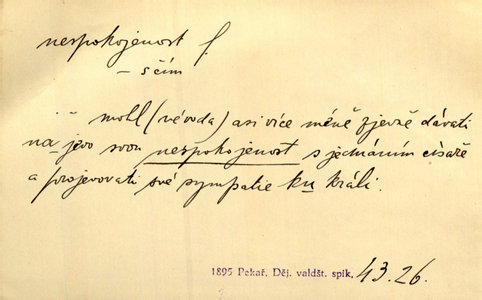 nespokojenost f.
– s čím
… mohl (vévoda) asi více méně zjevně dávati
na jevo svou nespokojenost s jednáním císaře
a projevovati své sympatie ku králi.
1895 Pekař. Děj. valdšt. spik. 43.26.